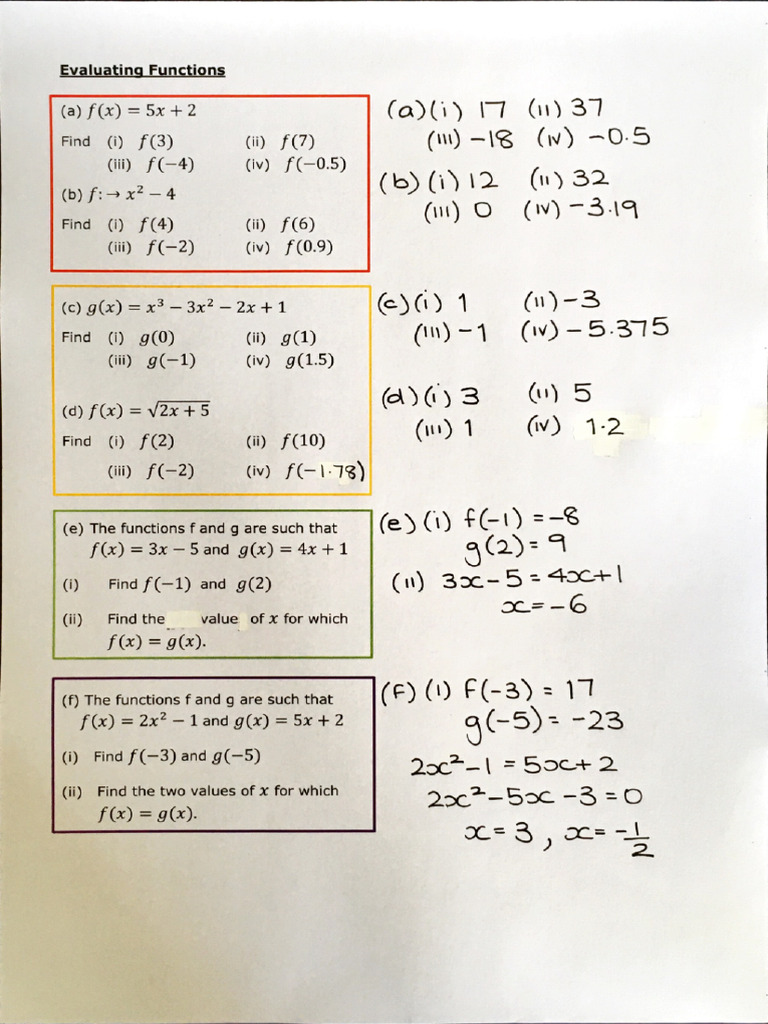 Evaluating Functions
(a) f(x) = 5x + 2
Find (i) f(3) (ii) f(7)
(iii) f(−4) (iv) f(−0.5)
(b) f: → x² − 4
Find (i) f(4) (ii) f(6)
(iii) f(−2) (iv) f(0.9)
(a)(i) 17 (ii) 37
(iii) −18 (iv) −0.5
(b)(i) 12 (ii) 32
(iii) 0 (iv) −3.19
(c) g(x) = x³ − 3x² − 2x + 1
Find (i) g(0) (ii) g(1)
(iii) g(−1) (iv) g(1.5)
(d) f(x) = √(2x + 5)
Find (i) f(2) (ii) f(10)
(iii) f(−2) (iv) f(−1.78)
(c)(i) 1 (ii) −3
(iii) −1 (iv) −5.375
(d)(i) 3 (ii) 5
(iii) 1 (iv) 1.2
(e) The functions f and g are such that
f(x) = 3x − 5 and g(x) = 4x + 1
(i) Find f(−1) and g(2)
(ii) Find the value of x for which
f(x) = g(x).
(e)(i) f(−1) = −8
g(2) = 9
(ii) 3x − 5 = 4x + 1
x = −6
(f) The functions f and g are such that
f(x) = 2x² − 1 and g(x) = 5x + 2
(i) Find f(−3) and g(−5)
(ii) Find the two values of x for which
f(x) = g(x).
(F) (i) F(−3) = 17
g(−5) = −23
2x² − 1 = 5x + 2
2x² − 5x − 3 = 0
x = 3 , x = −1/2